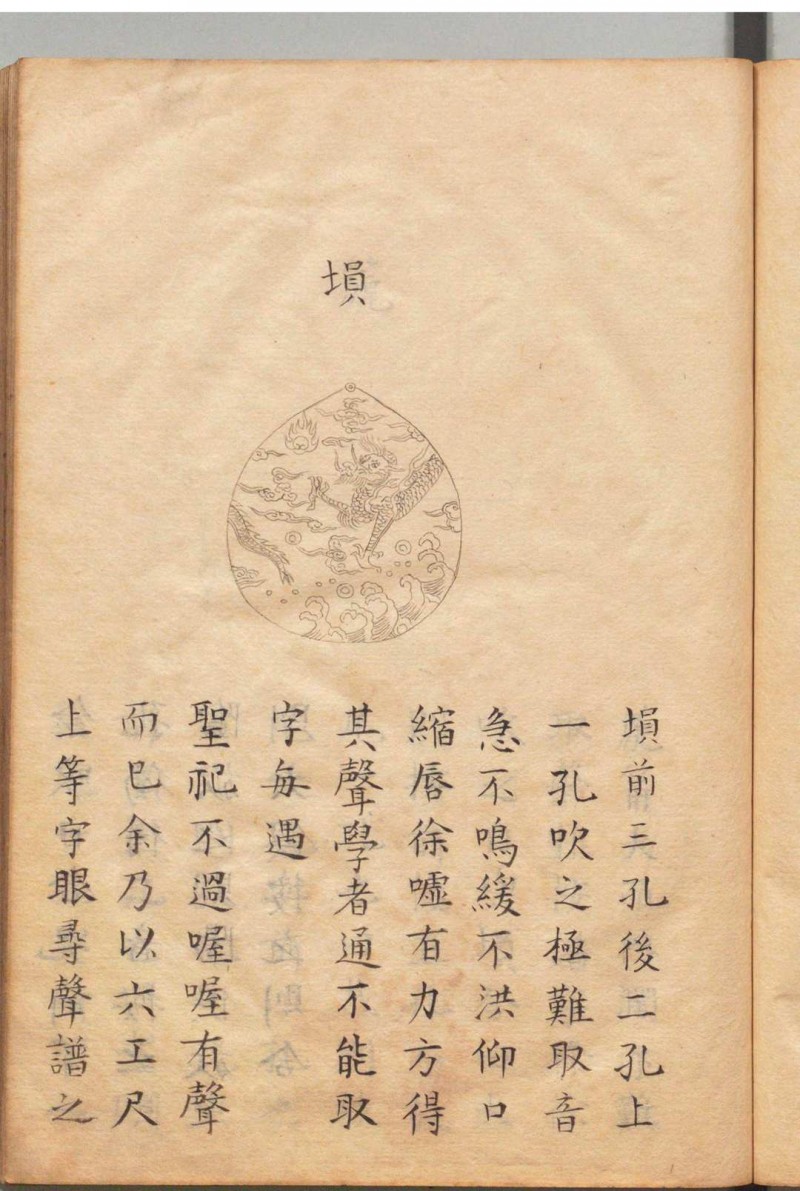 塤
塤前三孔後二孔上
一孔吹之極難取音
急不鳴緩不洪仰口
縮唇徐噓有力方得
其聲學者通不能取
字每遇
聖祀不過喔喔有聲
而已余乃以六工尺
上等字眼尋聲譜之